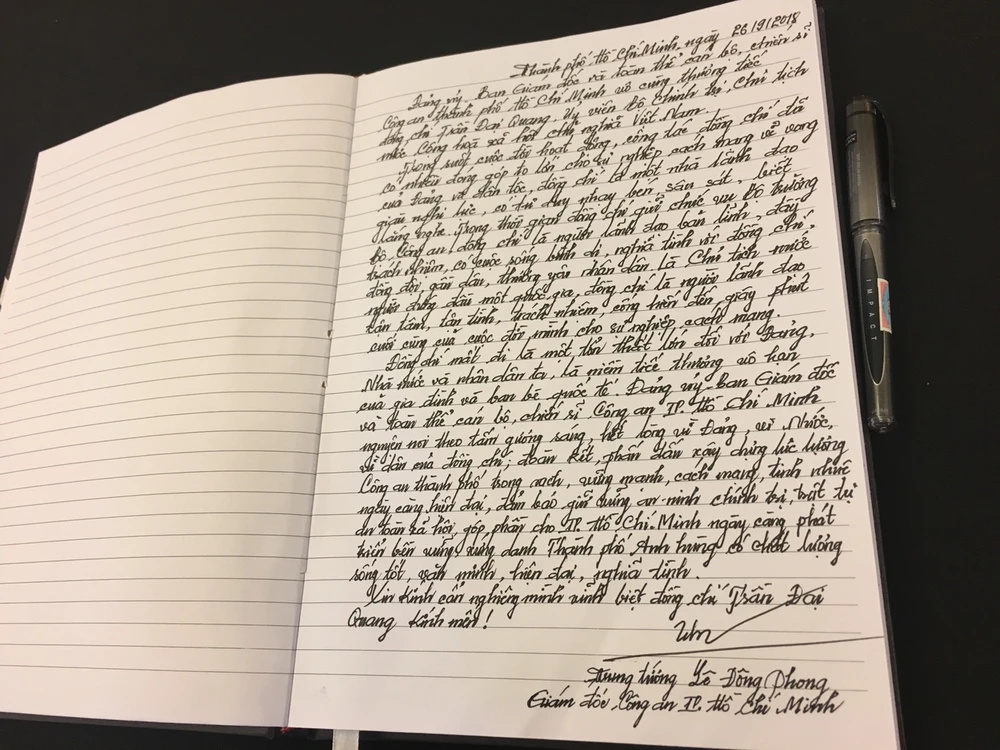 Thành phố Hồ Chí Minh, ngày 26/9/2018
Đảng ủy, Ban Giám đốc và toàn thể cán bộ, chiến sĩ
Công an thành phố Hồ Chí Minh vô cùng thương tiếc
đồng chí Trần Đại Quang, Uỷ viên Bộ Chính trị, Chủ tịch
nước Cộng hoà xã hội chủ nghĩa Việt Nam.
Trong suốt cuộc đời hoạt động, công tác, đồng chí đã
có nhiều đóng góp to lớn cho sự nghiệp cách mạng vẻ vang
của Đảng và dân tộc, đồng chí là một nhà lãnh đạo
giàu nghị lực, có tư duy nhạy bén, sâu sát, biết
lắng nghe. Trong thời gian đồng chí giữ chức vụ Bộ trưởng
Bộ Công an, đồng chí là người lãnh đạo bản lĩnh, đầy
trách nhiệm, có cuộc sống bình dị, nghĩa tình với đồng chí,
đồng đội, gần dân, thương yêu nhân dân. Là Chủ tịch nước
người đứng đầu một quốc gia, đồng chí là người lãnh đạo
tận tâm, tận tình, trách nhiệm, cống hiến đến giây phút
cuối cùng của cuộc đời mình cho sự nghiệp cách mạng.
Đồng chí mất đi là một tổn thất lớn đối với Đảng,
Nhà nước và nhân dân ta, là niềm tiếc thương vô hạn
của gia đình và bạn bè quốc tế. Đảng uỷ - ban Giám đốc
và toàn thể cán bộ, chiến sĩ Công an TP. Hồ Chí Minh
nguyện noi theo tấm gương sáng, hết lòng vì Đảng, vì Nước,
vì dân của đồng chí; đoàn kết, phấn đấu xây dựng lực lượng
Công an thành phố trong sạch, vững mạnh, cách mạng, tinh nhuệ
ngày càng hiện đại, đảm bảo giữ vững an ninh chính trị, trật tự
an toàn xã hội, góp phần cho TP. Hồ Chí Minh ngày càng phát
triển bền vững, xứng danh Thành phố Anh hùng có chất lượng
sống tốt, văn minh, hiện đại, nghĩa tình.
Xin kính cẩn nghiêng mình vĩnh biệt đồng chí Trần Đại
Quang kính mến!
Trung tướng Lê Đông Phong
Giám đốc Công an TP. Hồ Chí Minh
IMPACT